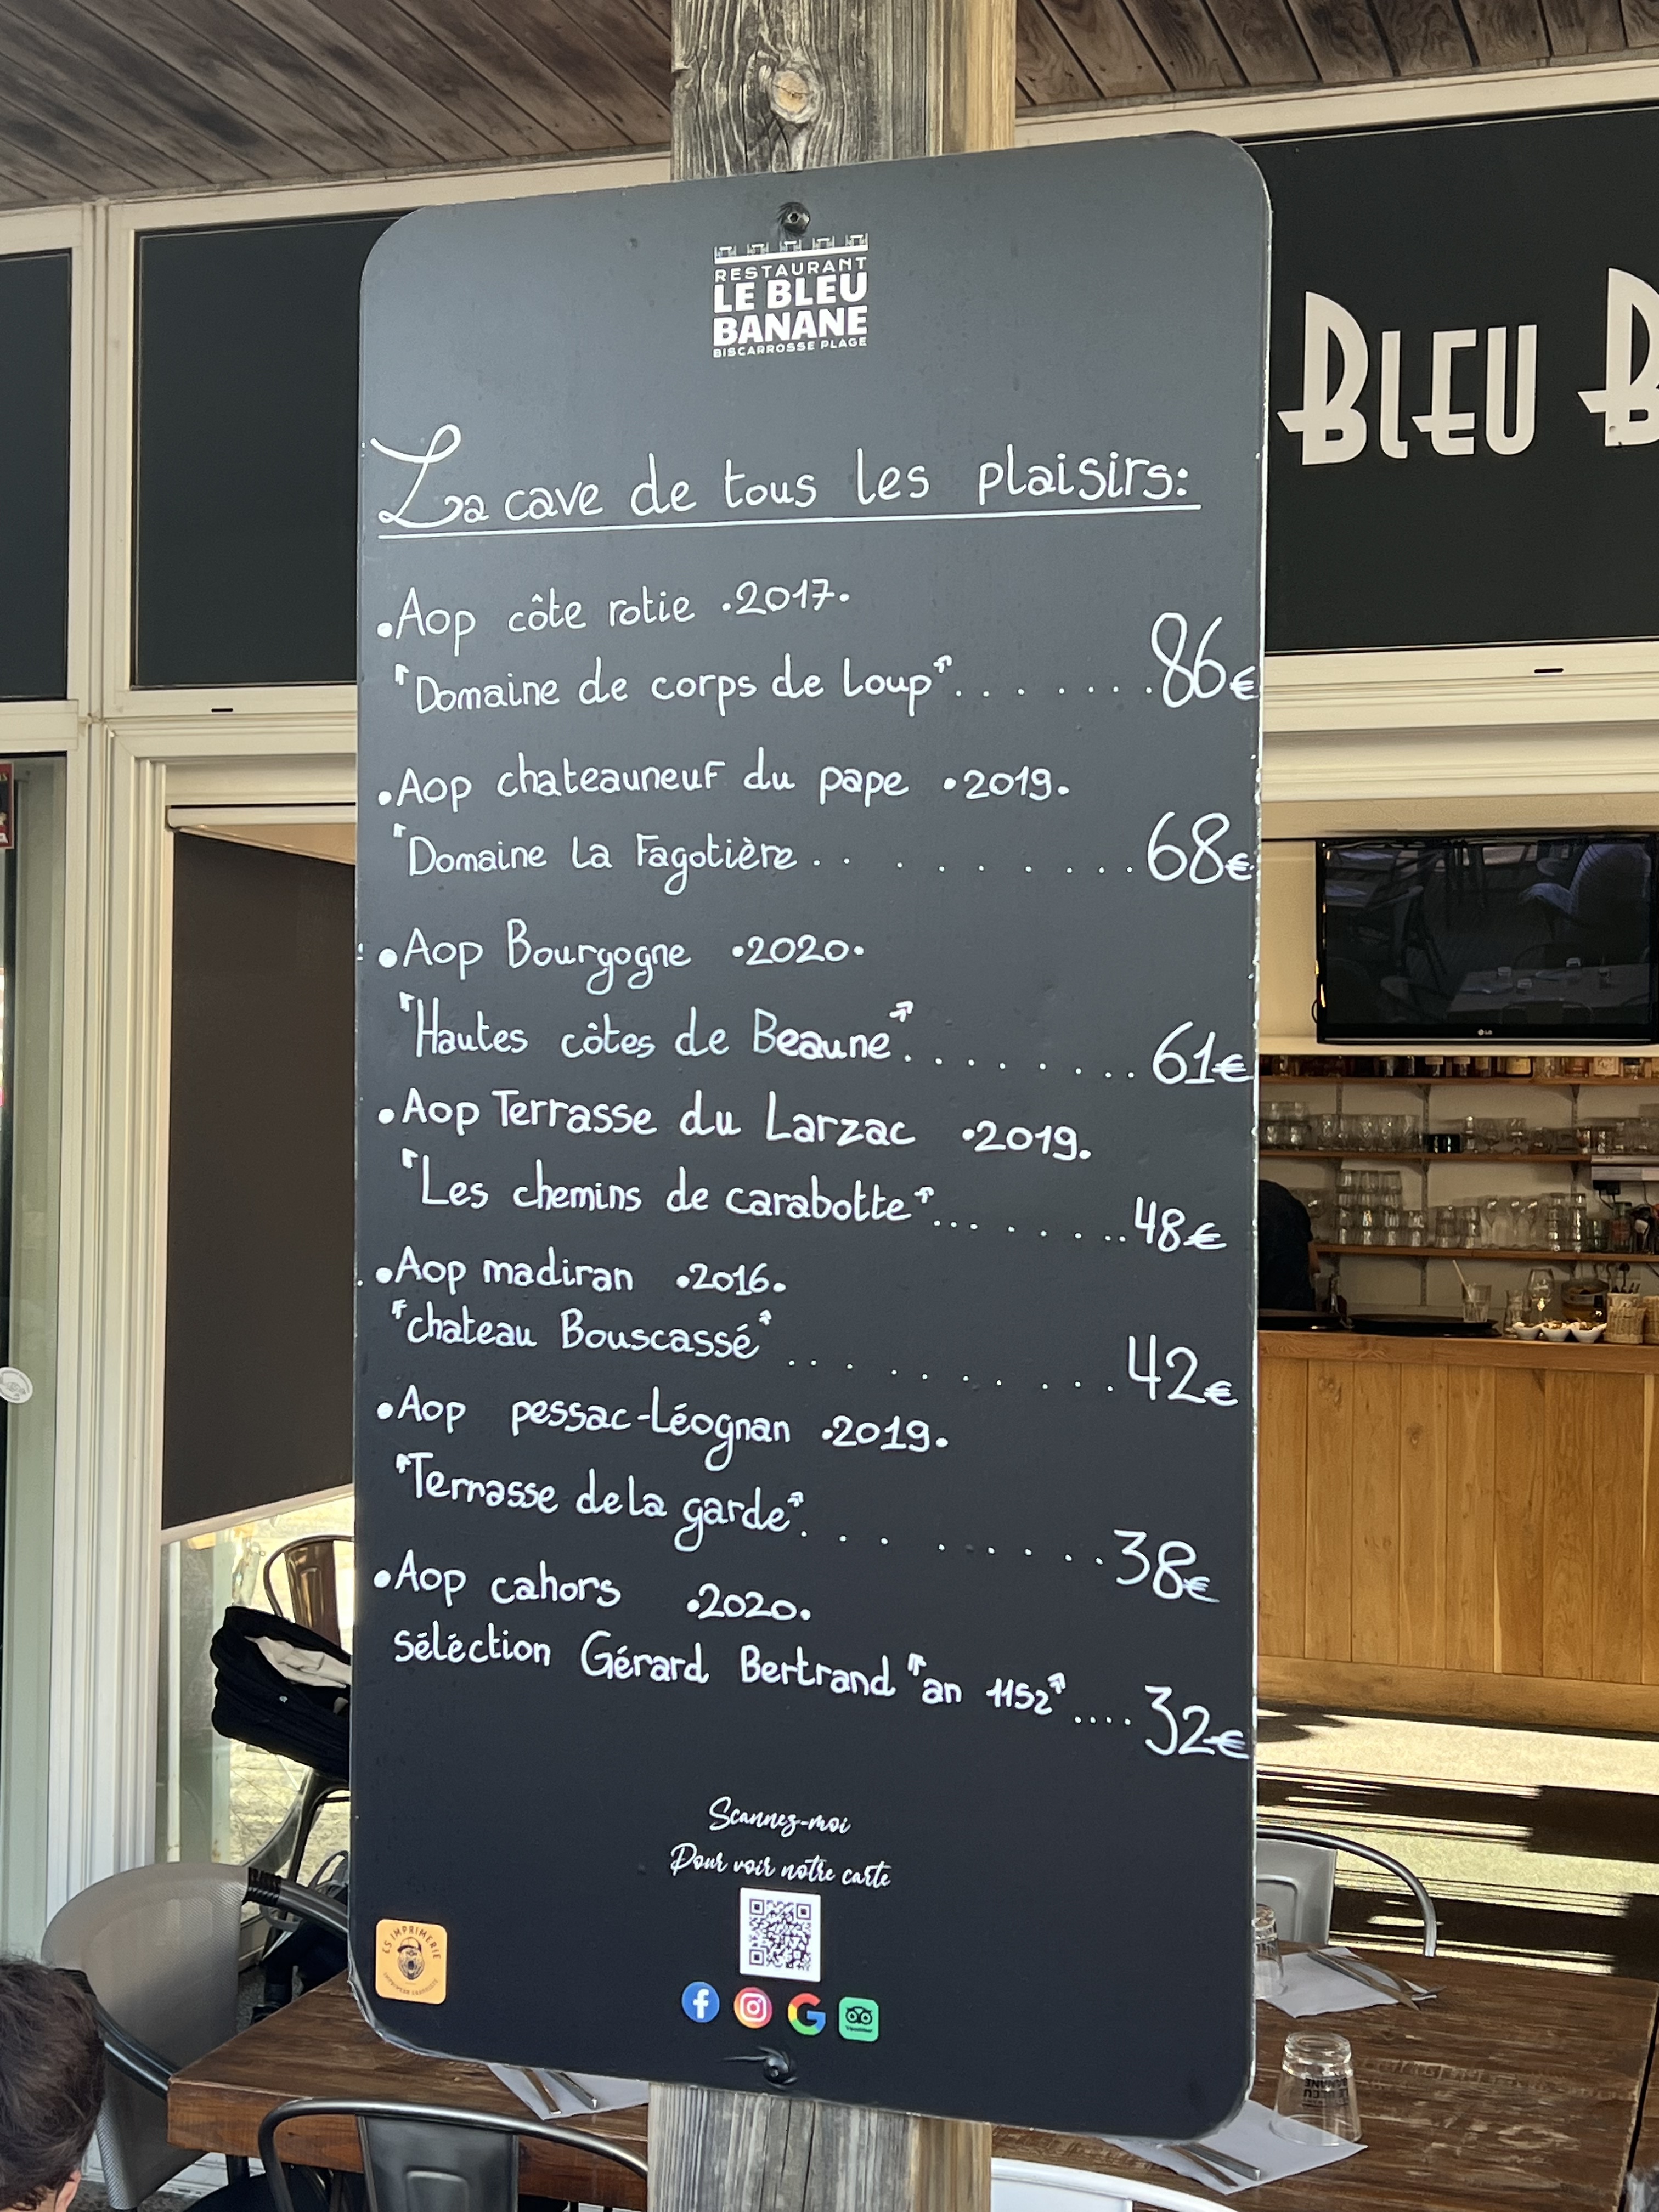 RESTAURANT
LE BLEU
BANANE
BISCARROSSE PLAGE
BLEU B
La cave de tous les plaisirs:
• Aop côte rotie • 2017 •
"Domaine de corps de Loup" . . . . . . . 86€
• Aop chateauneuf du pape • 2019 •
"Domaine La Fagotière . . . . . . . . . 68€
• Aop Bourgogne • 2020 •
"Hautes côtes de Beaune" . . . . . . . . 61€
• Aop Terrasse du Larzac • 2019 •
"Les chemins de carabotte" . . . . . . . . 48€
• Aop madiran • 2016 •
"chateau Bouscassé" . . . . . . . . . . 42€
• Aop pessac-Léognan • 2019 •
"Terrasse de la garde" . . . . . . . . . 38€
• Aop cahors • 2020 •
séléction Gérard Bertrand "an 1152" .... 32€
Scannez-moi
Pour voir notre carte
CS IMPRIMERIE
LG